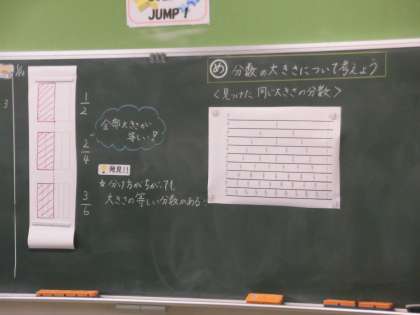 JUMP!
め 分数の大きさについて考えよう
<見つけた同じ大きさの分数>
1/2
2/4
3/6
全部大きさが
等しい!?
発見!!
☆分け方がちがっても、
大きさの等しい分数がある。
3